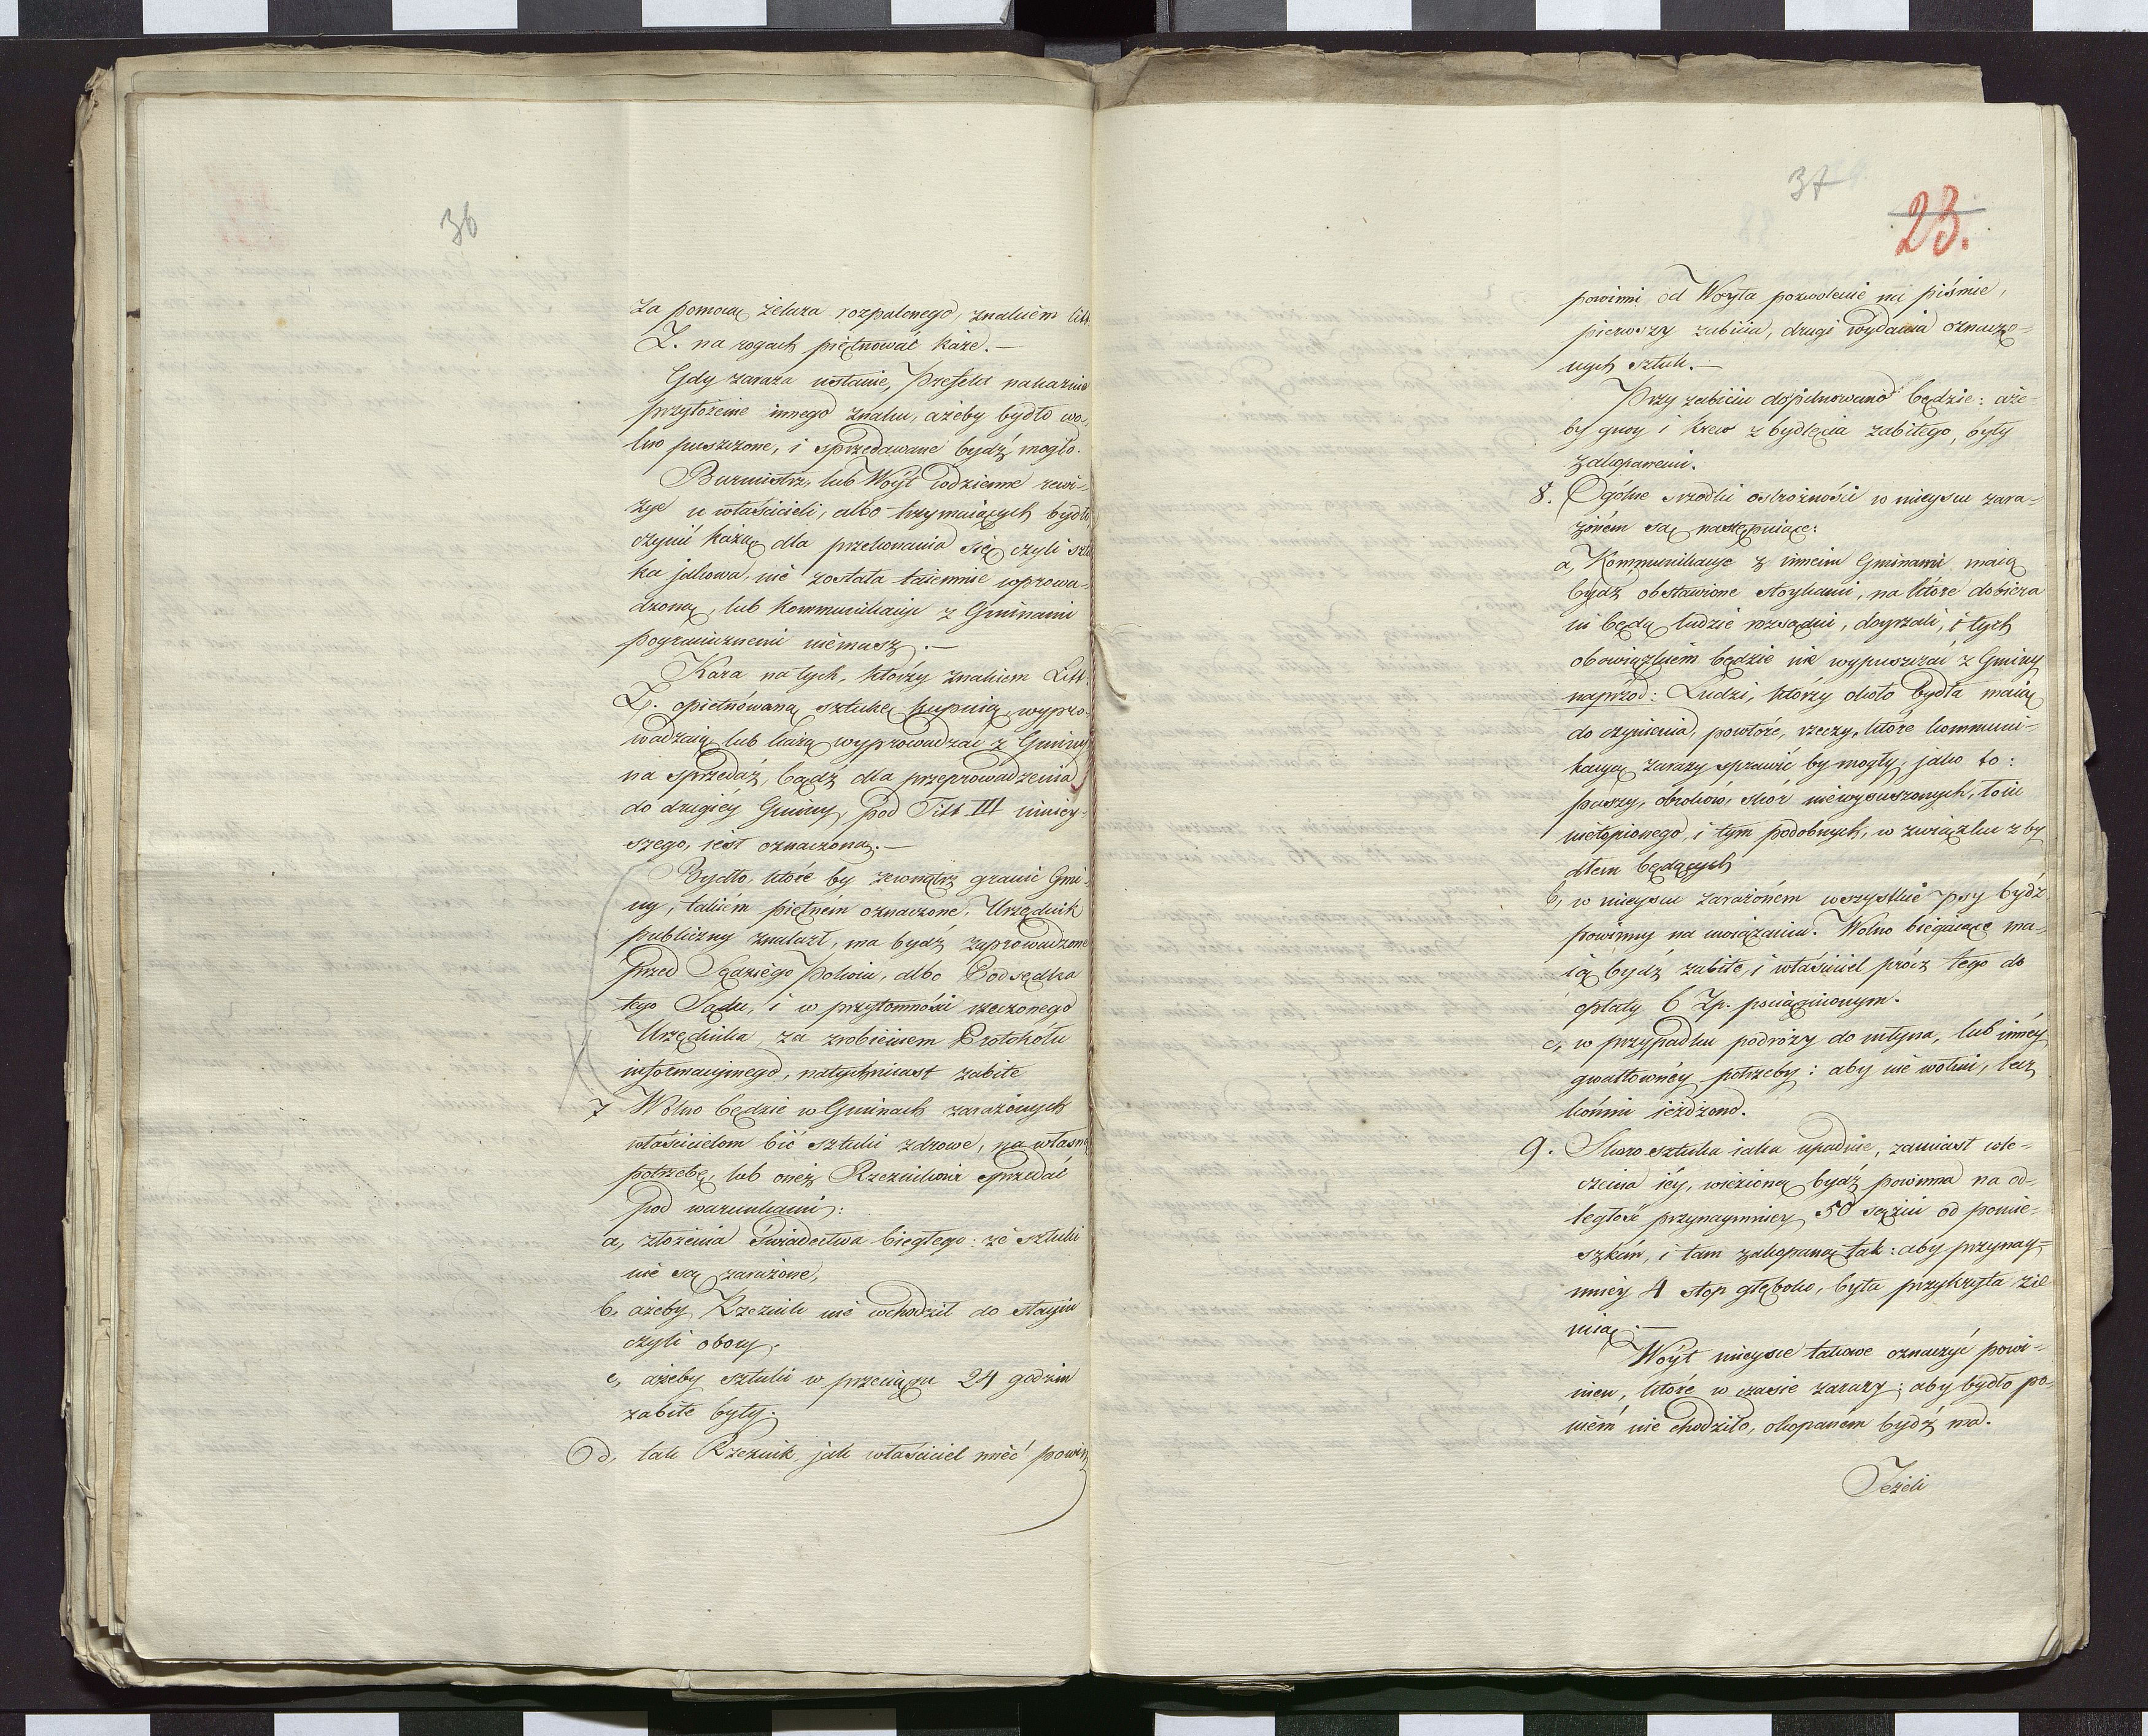 36
za pomocą żelaza rozpalonego, znakiem litt.
Z. na rogach piętnować każe.—
Gdy zaraza ustanie, Prefekt nakazuie
przyłożenie innego znaku, ażeby bydło wol-
no puszczone, i sprzedawane bydź mogło.
Burmistrz, lub Wóyt codzienne rewi-
zye u właścicieli, albo trzymaiących bydło,
czynić każą dla przekonania się czyli sztu
ka jakowa, nie została taiemnie wprowa-
dzoną, lub kommunikacyi z Gminami
pogranicznemi niemasz.—
Kara na tych, którzy znakiem Litt.
Z. opiętnowaną sztukę kupuią, wypro-
wadzaią lub każą wyprowadzać z Gminy
na sprzedaż, bądź dla przeprowadzenia
do drugiéy Gminy, pod Titt III niniey-
szego, iest oznaczoną.—
Bydło, któré by zewnątrz granic Gmi-
ny, takiém piętném oznaczone, Urzędnik
publiczny znalazł, ma bydź zaprowadzone
przed Sędziego Policii, albo Podsędka
tego Sądu, i w przytomności rzeczonego
Urzędnika, za zrobieniem Protokółu
informacyinego, natychmiast zabite
7 Wolno będzie w Gminach zarażonych
właścicielom bić sztuki zdrowe, na własną
potrzebę, lub oneż Rzeznikowi sprzedać
pod warunkami:
a, złożenia Świadectwa biegłego: że sztuki
nie są zarażone,
b, ażeby Rzeznik nie wchodził do stayni
czyli obory.
c, ażeby sztuki w przeciągu 24 godzin
zabite były.
d, tak Rzeznik, jak właściciel mieć powin
37
23.
powinni od Woyta pozwolenie na piśmie,
pierwszy zabicia, drugi wydania oznaczo-
nych sztuk.—
Przy zabiciu dopilnowano będzie: aże-
by gnoy i krew z bydlęcia zabitego, były
zakopanemi.
8. Ogólne srzodki ostrożności w mieyscu zara-
żoném są następuiące:
a, Kommunikacye z innemi Gminami maią
bydź obstawione stoykami, na któré dobiera
ni będą ludzie rozsądni, doyrzali, i tych
obowiązkiem będzie nie wypuszczać z Gminy
naprzod: Ludzi, którzy około bydła maią
do czynienia, powtóre, rzeczy, któré kommuni-
kacyą zarazy sprawić by mogły, jako to:
paszy, obroków, skór niewysuszonych, łoiu
nietopionego, i tym podobnych, w związku z by
dłem będących
b, w mieyscu zarażoném wszystkie psy bydź
powinny na uwiązaniu. Wolno biegaiące ma-
ią bydź zabite, i właściciel prócz tego do
opłaty 6 Zp. pociągnionym.
c, w przypadku podróży do młyna, lub innéy
gwałtownéy potrzeby: aby nie wołmi, lecz
końmi ieżdżono.
9. Skoro sztuka iaka upadnie, zamiast wle-
czenia iéy, wiezioną bydź powinna na od-
ległość przynaymniey 50 sążni od pomie-
szkań, i tam zakopaną tak: aby przynay-
mniéy 4 stop głęboko, była przykryta zie
mią.—
Wóyt mieysce takowe oznaczyć powi-
nien, któré w czasie zarazy; aby bydło po
niém nie chodziło, okopanem bydź ma.
Jeżeli